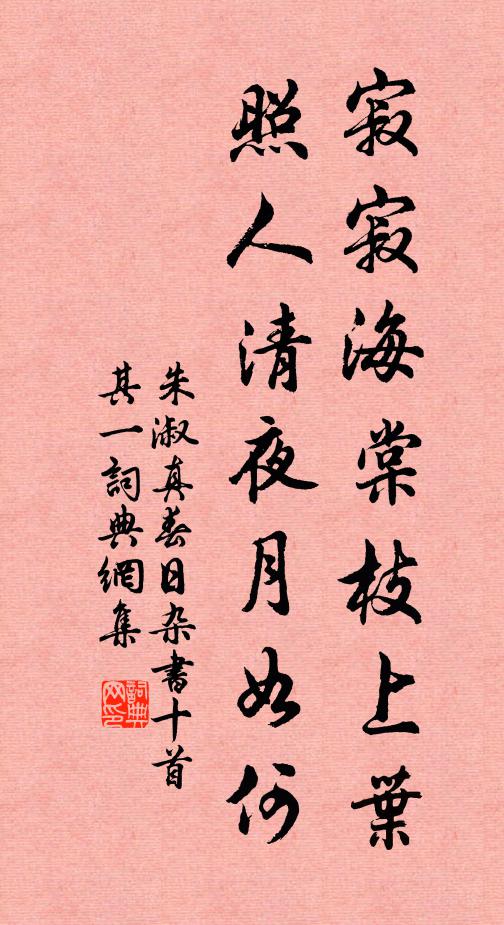 寂寂海棠枝上葉
照人清夜月如何
朱淑真春日杂書十首
其一詞典網集
詞典网印